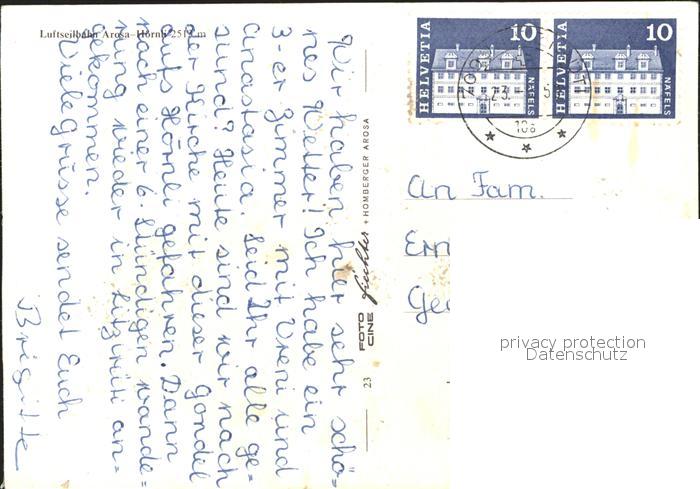 Luftseilbahn Arosa-Hörnli 2511 m
Wir haben hier sehr schö=
nes Wetter! Ich habe ein
3-er Zimmer mit Vreni und
Anastasia. Seid Ihr alle ge=
sund? Heute sind wir nach
der Kirche mit dieser Gondel
aufs Hörnli gefahren. Dann
nach einer 6. Stündigen wande=
rung wieder in Litzirüti an=
gekommen.
Viele Grüsse sendet Euch
Brigitte
23 FOTO CINE Fischter + HOMBERGER AROSA
HELVETIA 10 NÄFELS
HELVETIA 10 NÄFELS
An Fam.
privacy protection
Datenschutz